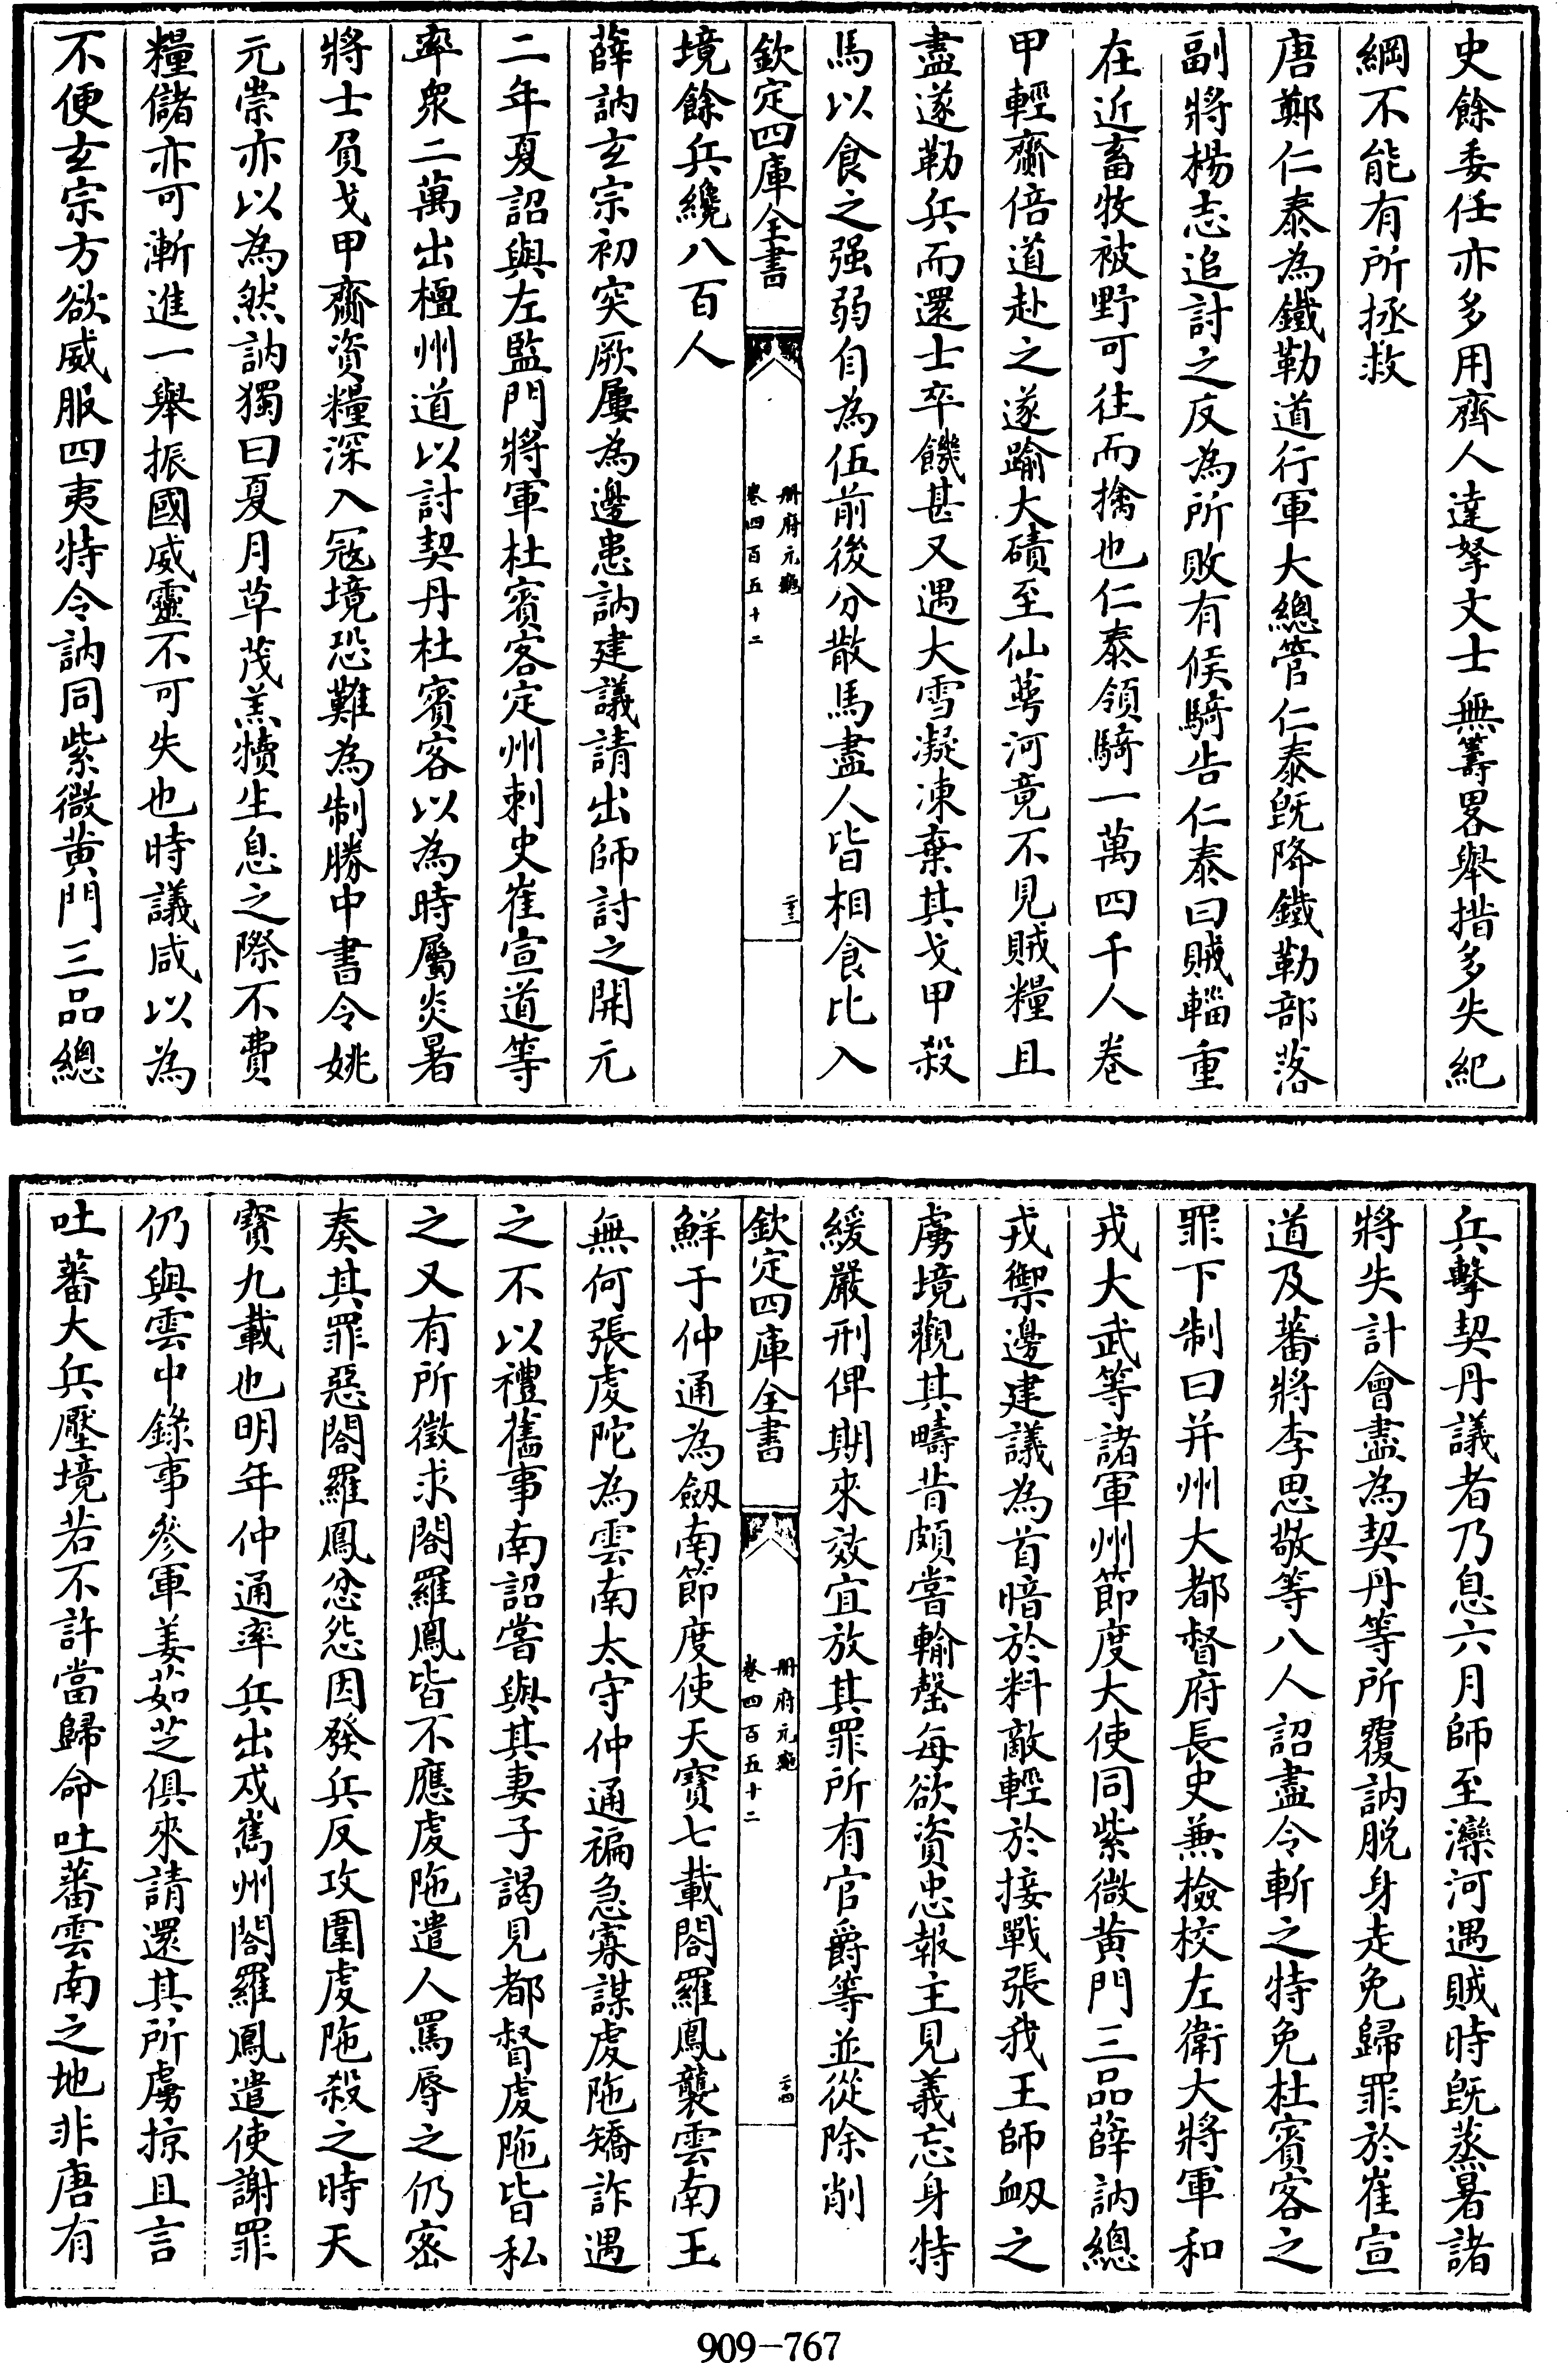 史餘委任亦多用齊人達拏文士無籌畧舉措多失紀
綱不能有所拯救
唐鄭仁泰為鐵勒道行軍大總管仁泰既降鐵勒部落
副將楊志追討之反為所敗有候騎告仁泰曰賊輜重
在近畜牧被野可往而擒也仁泰領騎一萬四千人卷
甲輕齎倍道赴之遂踰大磧至仙萼河竟不見賊糧且
盡遂勒兵而還士卒饑甚又遇大雪凝凍棄其戈甲殺
馬以食之强弱自為伍前後分散馬盡人皆相食比入
欽定四庫全書
册府元龜
卷四百五十二
二十三
境餘兵纔八百人
薛訥玄宗初突厥屢為邊患訥建議請出師討之開元
二年夏詔與左監門將軍杜賓客定州刺史崔宣道等
率衆二萬出檀州道以討契丹杜賓客以為時屬炎暑
將士負戈甲齎資糧深入寇境恐難為制勝中書令姚
元崇亦以為然訥獨曰夏月草茂羔犢生息之際不費
糧儲亦可漸進一舉振國威靈不可失也時議咸以為
不便玄宗方欲威服四夷特令訥同紫微黄門三品總
兵擊契丹議者乃息六月師至灤河遇賊時既蒸暑諸
將失計會盡為契丹等所覆訥脱身走免歸罪於崔宣
道及蕃將李思敬等八人詔盡令斬之特免杜賓客之
罪下制曰并州大都督府長史兼檢校左衛大將軍和
戎大武等諸軍州節度大使同紫微黄門三品薛訥總
戎禦邊建議為首暗於料敵輕於接戰張我王師衂之
虜境觀其疇昔頗嘗輸罄每欲資忠報主見義忘身特
緩嚴刑俾期來效宜放其罪所有官爵等並從除削
欽定四庫全書
册府元龜
卷四百五十二
二十四
鮮于仲通為劔南節度使天寶七載閤羅鳳襲雲南王
無何張虔陀為雲南太守仲通褊急寡謀虔陁矯詐遇
之不以禮舊事南詔嘗與其妻子謁見都督虔陁皆私
之又有所徵求閤羅鳳皆不應虔陁遣人罵辱之仍密
奏其罪惡閤羅鳳忿怨因發兵反攻圍虔陁殺之時天
寶九載也明年仲通率兵出戎嶲州閤羅鳳遣使謝罪
仍與雲中錄事參軍姜茹芝俱來請還其所虜掠且言
吐蕃大兵壓境若不許當歸命吐蕃雲南之地非唐有
909-767